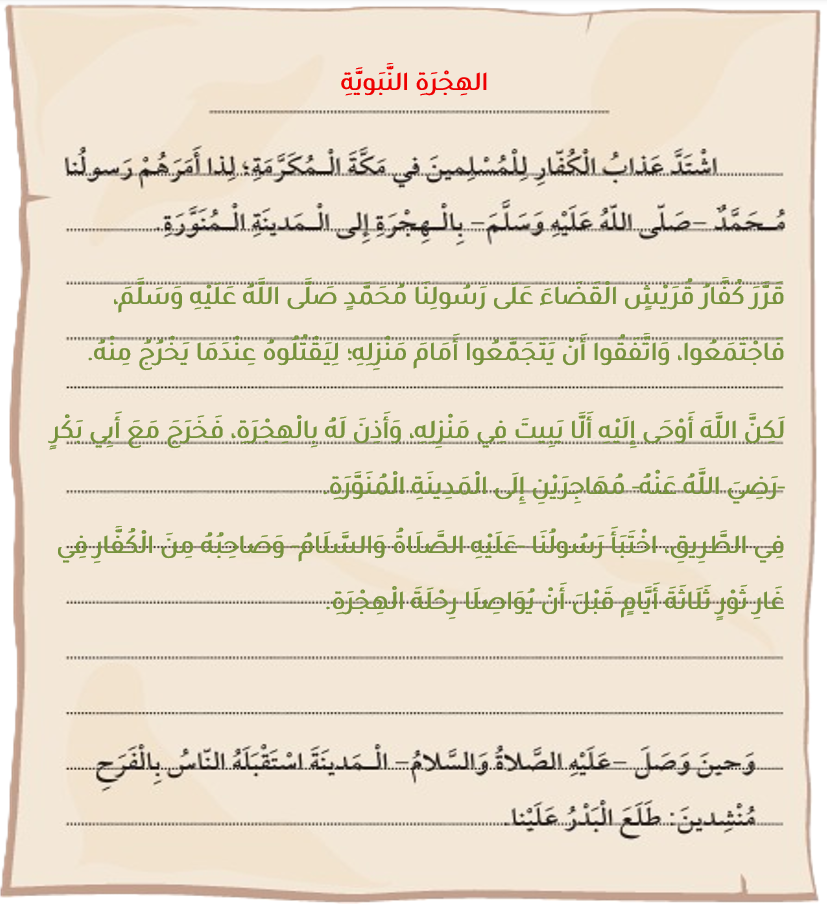 الهِجْرَةِ النَّبَويَّةِ
اشْتَدَّ عَذابُ الْكُفّارِ لِلْمُسْلِمينَ في مَكَّةَ الْـمُكَرَّمَةِ؛ لِذا أَمَرَهُمْ رَسولُنا
مُـحَمَّدٌ –صَلّى اللّهُ عَلَيْهِ وَسَلَّمَ– بِالْـهِجْرَةِ إِلى الْـمَدينَةِ الْـمُنَوَّرَةِ.
قَرَّرَ كُفَّارُ قُرَيْشٍ الْقَضَاءَ عَلى رَسُولِنَا مُحَمَّدٍ صَلَّى اللَّهُ عَلَيْهِ وَسَلَّمَ،
فَاجْتَمَعُوا، وَاتَّفَقُوا أَنْ يَتَجَمَّعُوا أَمَامَ مَنْزِلِهِ؛ لِيَقْتُلُوهُ عِنْدَمَا يَخْرُجُ مِنْهُ.
لَكِنَّ اللَّهَ أَوْحَى إِلَيْهِ أَلَّا يَبِيتَ فِي مَنْزِلِهِ، وَأَذِنَ لَهُ بِالْهِجْرَةِ، فَخَرَجَ مَعَ أَبِي بَكْرٍ
-رَضِيَ اللَّهُ عَنْهُ- مُهَاجِرَيْنِ إِلَى الْمَدِينَةِ الْمُنَوَّرَةِ.
فِي الطَّرِيقِ، اخْتَبَأَ رَسُولُنَا -عَلَيْهِ الصَّلَاةُ وَالسَّلَامُ- وَصَاحِبُهُ مِنَ الْكُفَّارِ فِي
غَارِ ثَوْرٍ ثَلَاثَةَ أَيَّامٍ قَبْلَ أَنْ يُوَاصِلَا رِحْلَةَ الْهِجْرَةِ.
وَحينَ وَصَلَ –عَلَيْهِ الصَّلاةُ وَالسَّلامُ– الْـمَدينَةَ اسْتَقْبَلَهُ النّاسُ بِالْفَرَحِ
مُنْشِدينَ: طَلَعَ الْبَدْرُ عَلَيْنا.